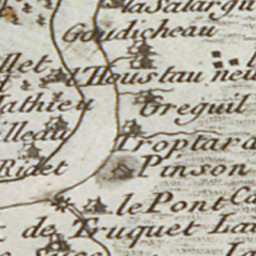 la Salargu
Goudicheau
llet
l'Houstau neu
athieu
Greguil
lleau
Troptard
Ridet
Pinson
le Pont Ca
de Truquet Lau
La